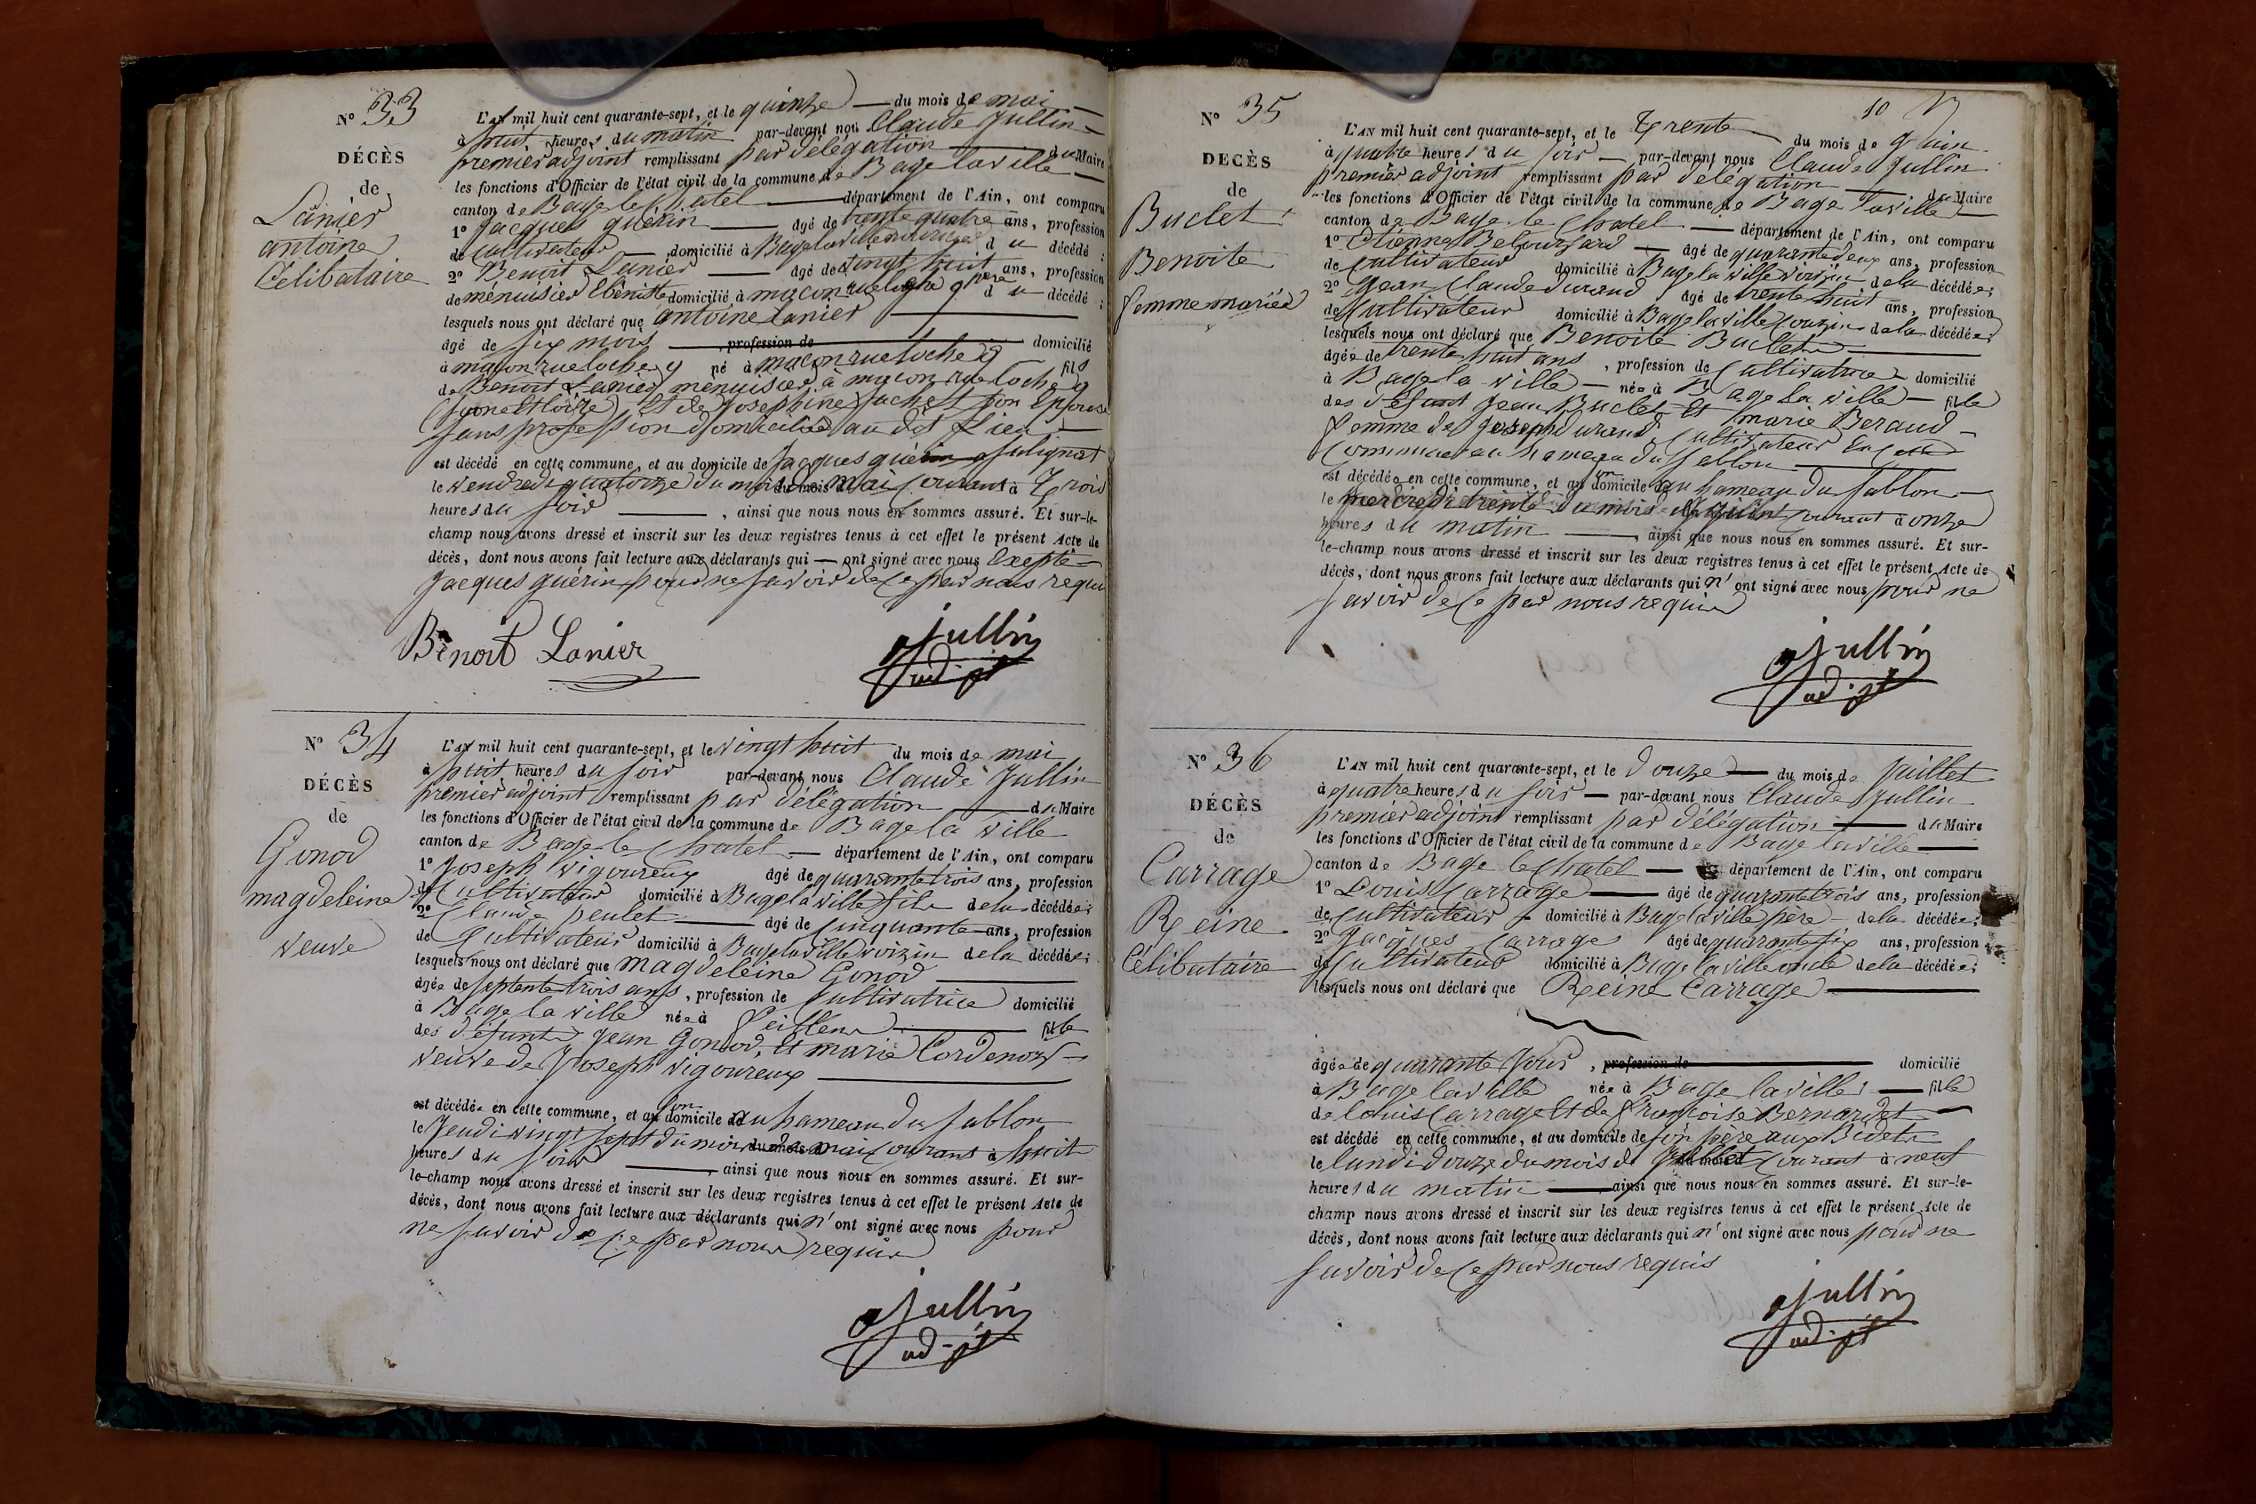 N° 33
DÉCÈS
de
Lanier
antoine
Célibataire
L'AN mil huit cent quarante-sept, et le quinze du mois de mai
à huit heures du matin par-devant nous Claude Jullin
premier adjoint remplissant par délégation du Maire
les fonctions d'Officier de l'état civil de la commune de Bage laville
canton de Bage le Chatel département de l'Ain, ont comparu
1° Jacques guérin âgé de trente quatre ans, profession
de Cultivateur domicilié à Bage laville nourricier du décédé ;
2° Benoit Lanier âgé de vingt huit ans, profession
de menuisier Ebéniste domicilié à macon rue loche 9 père du décédé ;
lesquels nous ont déclaré que antoine Lanier
âgé de six mois , profession de domicilié
à macon rue loche 9 né à macon rue loche 9 fils
de Benoit Lanier menuisier à macon rue loche 9
(Saone et loire) Et de Josephine son Epouse
sans profession domiciliée au dit Lieu
est décédé en cette commune, et au domicile de Jacques guérin a Sulignat
le vendredi quatorze du mois de mai courant à Trois
heures du soir , ainsi que nous nous en sommes assuré. Et sur-le-
champ nous avons dressé et inscrit sur les deux registres tenus à cet effet le présent Acte de
décès, dont nous avons fait lecture aux déclarants qui ont signé avec nous Excepté
Jacques guérin pour ne savoir de ce par nous requis
Benoit Lanier
Jullin
adj. pt
N° 34
DÉCÈS
de
Gonod
magdeleine
veuve
L'AN mil huit cent quarante-sept, et le vingt huit du mois de mai
à huit heures du soir par-devant nous Claude Jullin
premier adjoint remplissant par délégation du Maire
les fonctions d'Officier de l'état civil de la commune de Bage la ville
canton de Bage le Chatel département de l'Ain, ont comparu
1° Joseph Vigoureux âgé de quarante trois ans, profession
de Cultivateur domicilié à Bage la ville fils de la décédée ;
2° Claude peulet âgé de Cinquante ans, profession
de Cultivateur domicilié à Bage la ville voizin de la décédée ;
lesquels nous ont déclaré que magdeleine Gonod
âgée de septente trois ans, profession de Cultivatrice domicilié
à Bage la ville née à feillens fille
des défunts Jean Gonod, Et marie Cordenod
veuve de Joseph Vigoureux
est décédée en cette commune, et au son domicile au hameau du sablon
le Jeudi vingt sept du mois de mai courant à huit
heures du soir , ainsi que nous nous en sommes assuré. Et sur-
le-champ nous avons dressé et inscrit sur les deux registres tenus à cet effet le présent Acte de
décès, dont nous avons fait lecture aux déclarants qui n'ont signé avec nous pour
ne savoir de ce par nous requis
Jullin
adj. pt
10
N° 35
DÉCÈS
de
Buclet
Benoite
femme mariée
L'AN mil huit cent quarante-sept, et le Trente du mois de Juin
à quatre heures du soir par-devant nous Claude Jullin
premier adjoint remplissant par délégation du Maire
les fonctions d'Officier de l'état civil de la commune de Bage laville
canton de Bage le Chatel département de l'Ain, ont comparu
1° Etienne Belouzard âgé de quarante deux ans, profession
de Cultivateur domicilié à Bage la ville voizin de la décédée ;
2° Jean Claude Durand âgé de trente huit ans, profession
de Cultivateur domicilié à Bage la ville Couzin de la décédée ;
lesquels nous ont déclaré que Benoite Buclet
âgée de trente huit ans , profession de Cultivatrice domicilié
à Bage la ville née à Bage la ville fille
des défunt Jean Buclet Et marie Beraud
femme de Joseph Durand Cultivateur En Cette
Commune au hameau du sablon
est décédée en cette commune, et au son domicile au hameau du sablon
le mercredi trente du mois de Juin courant à onze
heures du matin , ainsi que nous nous en sommes assuré. Et sur-
le-champ nous avons dressé et inscrit sur les deux registres tenus à cet effet le présent Acte de
décès, dont nous avons fait lecture aux déclarants qui n'ont signé avec nous pour ne
savoir de ce par nous requis
Jullin
adj. pt
N° 36
DÉCÈS
de
Carrage
Reine
Célibataire
L'AN mil huit cent quarante-sept, et le douze du mois de Juillet
à quatre heures du soir par-devant nous Claude Jullin
premier adjoint remplissant par délégation du Maire
les fonctions d'Officier de l'état civil de la commune de Bage laville
canton de Bage le Chatel département de l'Ain, ont comparu
1° Louis Carrage âgé de quarante trois ans, profession
de Cultivateur domicilié à Bage laville père de la décédée ;
2° Jacques Carrage âgé de quarante six ans, profession
de Cultivateur domicilié à Bage laville oncle de la décédée ;
lesquels nous ont déclaré que Reine Carrage
âgée de quarante Jours , profession de domicilié
à Bage laville née à Bage laville fille
de Louis Carrage Et de françoise Bernardet
est décédé en cette commune, et au domicile de son père aux Bidets
le lundi douze du mois de Juillet courant à neuf
heures du matin ainsi que nous nous en sommes assuré. Et sur-le-
champ nous avons dressé et inscrit sur les deux registres tenus à cet effet le présent Acte de
décès, dont nous avons fait lecture aux déclarants qui n'ont signé avec nous pour ne
savoir de ce par nous requis
Jullin
adj. pt